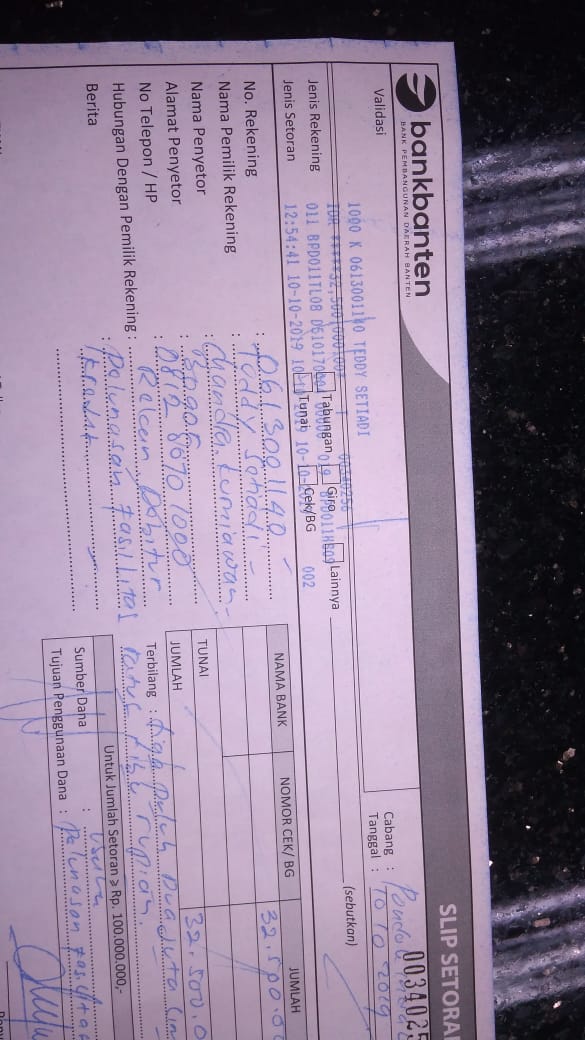 bankbanten
BANK PEMBANGUNAN DAERAH BANTEN
SLIP SETORA
Validasi
1000 K 0613001140 TEDDY SETIADI
IDR
011 BPD011TL08
12:54:41 10-10-2019
10-10-
002
Cabang : Pondok
0034025
Tanggal : 10 10 2019
Jenis Rekening
Tabungan Giro Lainnya
(sebutkan)
Jenis Setoran
Tunai Cek/BG
No. Rekening : 0613001140
Nama Pemilik Rekening : Teddy Setiadi
Nama Penyetor : Chanda Kurniawan
Alamat Penyetor : Bogor
No Telepon / HP : 0812 8670 1000
Hubungan Dengan Pemilik Rekening : Rekan Debitur
Berita : Pelunasan fasilitas
kredit
NAMA BANK NOMOR CEK/ BG JUMLAH
32.500.0
TUNAI
JUMLAH 32.500.0
Terbilang : tiga puluh dua juta lim
ratus ribu rupiah.
Untuk Jumlah Setoran ≥ Rp. 100.000.000,-
Sumber Dana : Usaha
Tujuan Penggunaan Dana : Pelunasan fasilitas